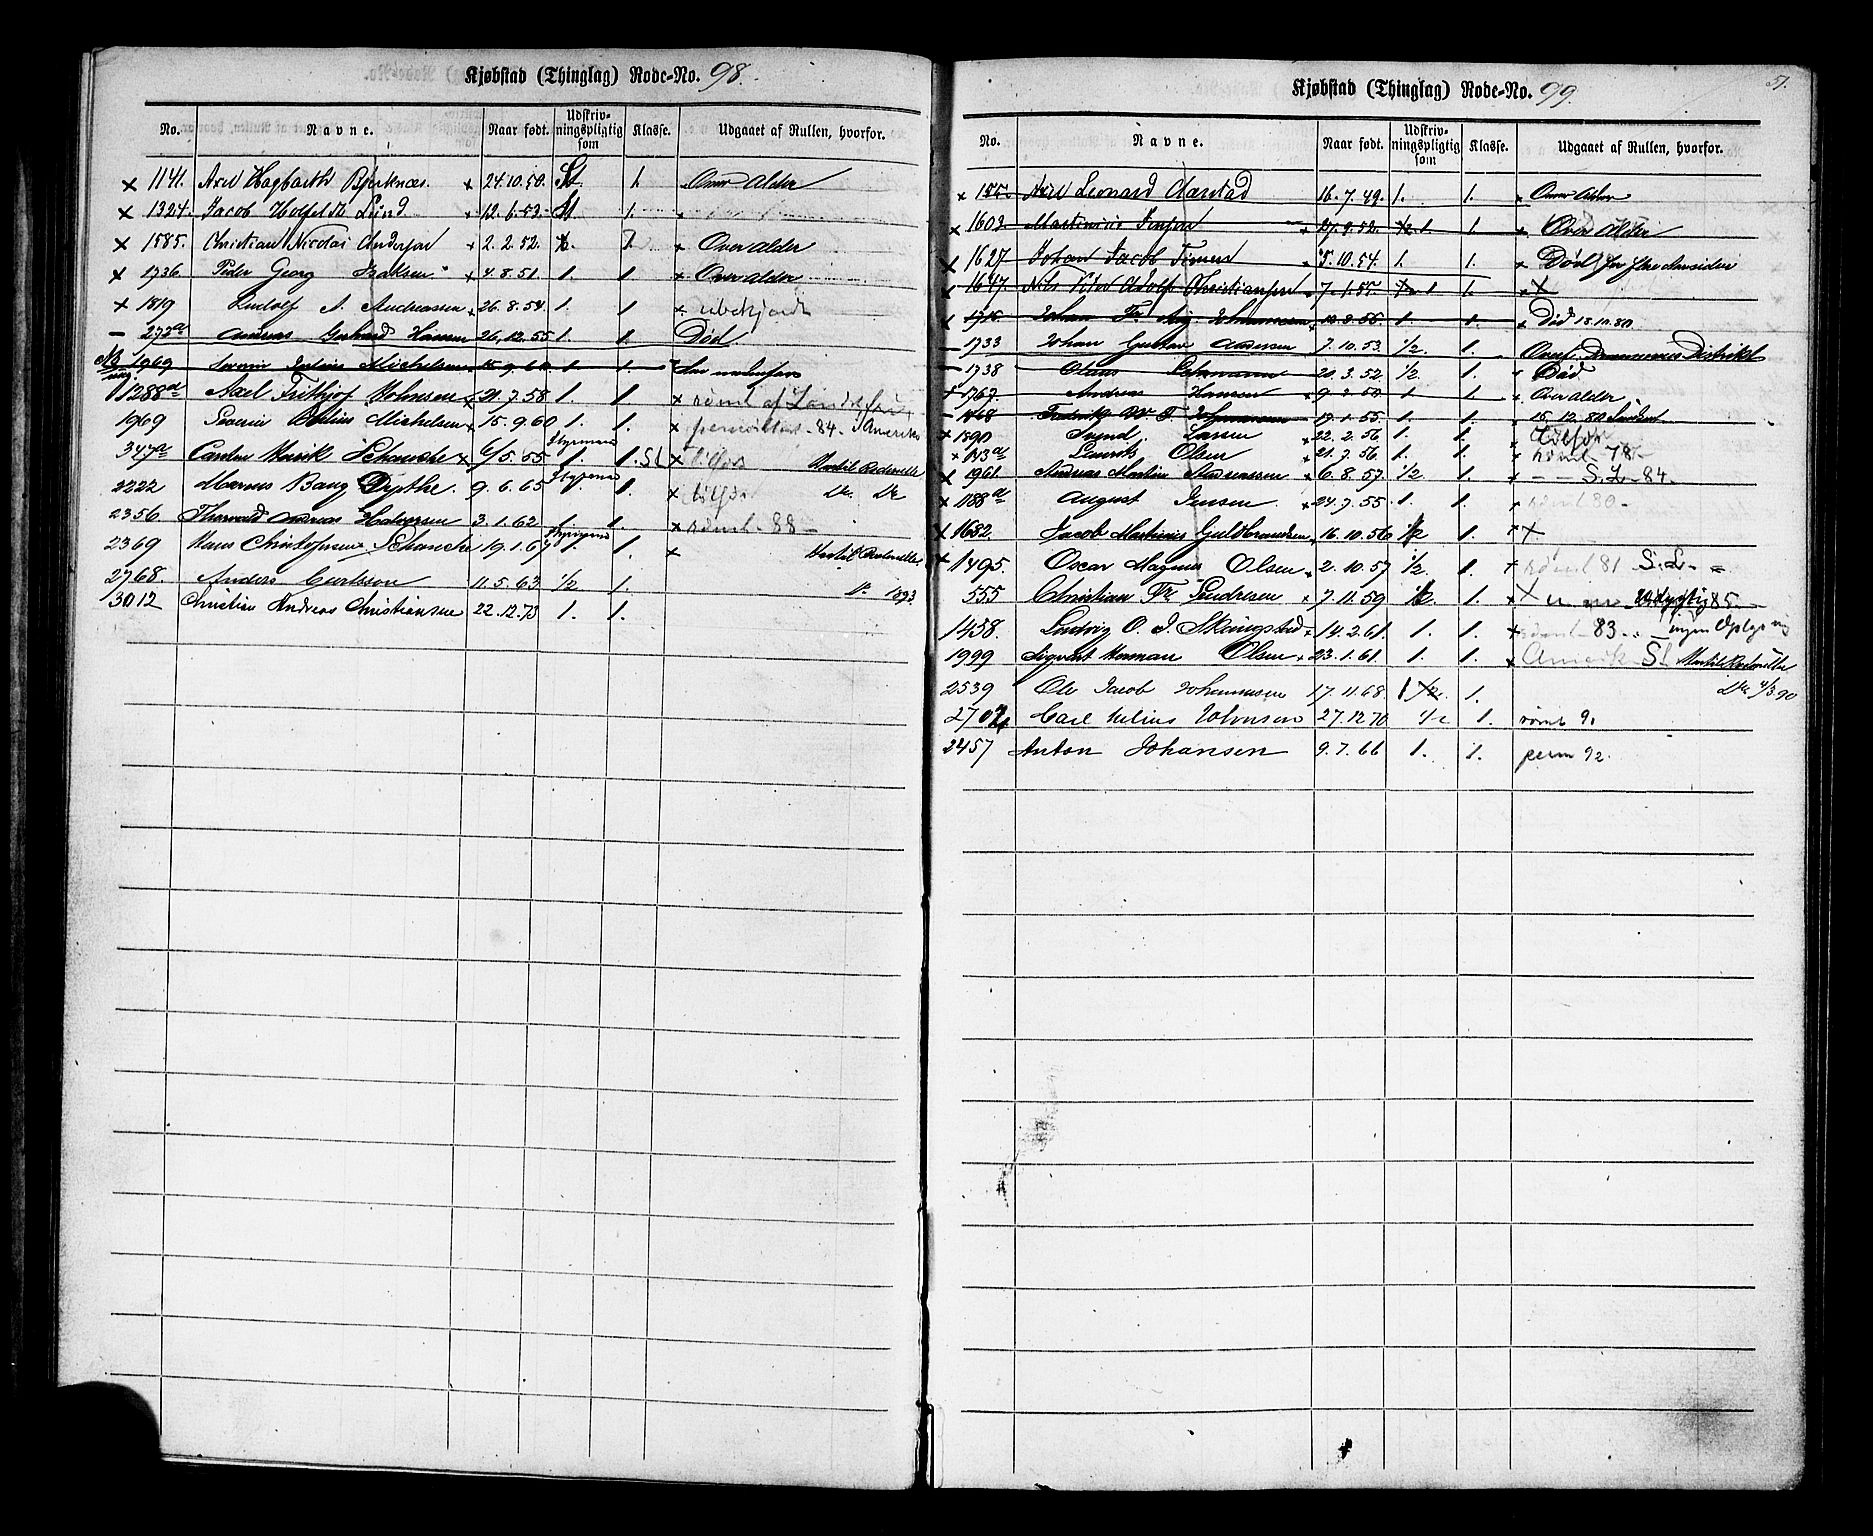 Kjøbstad (Thinglag) Rode-No. 98.
No. Navne. Naar født. Udskriv-ningspligtig som Klasse. Udgaaet af Rullen, hvorfor.
× 1141. Axel Hagbarth Bjerknæs. × 24.10.50. St 1. Over Alder
× 1324. Jacob Holfeldt Lund × 12.6.53. St 1.
× 1585. Christian Nicolai Andersen × 2.2.52. 1. × Over alder
× 1736. Peder Georg Isaksen × 4.8.51. 1. 1. × Over alder
× 1819 Ludolf A. Andreassen × 26.8.54. 1. 1. × ubekjendt
– 272a Andreas Gerhard Hansen 26.12.55 1. 1. Død
1969 Severin Julius Michelsen 15.9.60 1. 1.
1288a Axel Frithjof Johnsen × 21.7.58 1. 1. × rømt af
1969 Severin Julius Michelsen × 15.9.60 1. 1. × 84. i Amerika
347a Carsten Henrik Schanche × 6/5.55 Styrmand 1. 1. St ×
2222 Marcus Bang Dypthe. 9.6.65 Styrmand 1. 1. ×
2356 Thorvald Andreas Halvorsen 3.1.62 1. 1. × rømt 88
2369 Hans Christophersen Schanche 19.1.67 Styrmand 1. 1. ×
2768. Anders Carlsson 11.5.63 1/2 1. 1893.
3012 Christian Andreas Christiansen 22.12.73 1. 1.
Kjøbstad (Thinglag) Rode-No. 99.
51.
No. Navne. Naar født. Udskriv-ningspligtig som Klasse. Udgaaet af Rullen, hvorfor.
× 155. Axel Leonard Aarstad 16.7.49. 1. 1. × Over Alder
× 1602 Martinius Jensen 27.9.52. 1 1. × Over Alder
× 1627 Johan Jacob × 5.10.54. 1. 1. × Død
× 1647. Nils Peter Adolf Christiansen 7.1.55. 1 1. ×
× 1715. Johan Fr. Aug. Johannesen 10.8.55 1 1. × Død 18.10.80
– 1733 Johan Gustav Andersen 7.10.53. 1/2 1. Overf. Drammens Distrikt
– 1738 Olaus Lehmann 20.3.52. 1/2 1. Død
× 1767. Andreas Hansen 9.2.50 1 1. Over alder
– 1868. Frederik W. F. Johannesen 19.1.55. 1 1. 15.12.80
× 1890 Svend Larsen × 22.2.56 1. 1.
× 143a Lauritz Olsen × 21.7.56 1. 1. × rømt 78
× 1961. Andreas Martin Andreassen × 6.8.57. 1/2 1. × – – S.L. 84.
× 1188a August Jensen × 24.7.55. 1. 1. × rømt 80
× 1682. Jacob Martinius Guldbrandsen × 16.10.56 1/2 1. ×
× 1495. Oscar Magnus Olsen × 2.10.57 1/2 1. × rømt 81 S.L.
555 Christian Fr. × 7.11.59 1. × 85
1458. Ludvig O. J. × 14.2.61. 1. 1. × rømt 83 ingen
1999 Sigvart Herman Olsen × 23.1.61 1. 1. × Amerik St.
2539 Ole Jacob Johannesen 17.11.68. 1 1. 4/3 90
2702. Carl Julius Johnsen 27.12.70 1/2 1. rømt 91
2457 Anton Johansen 9.7.66 1. 1. perm 92.